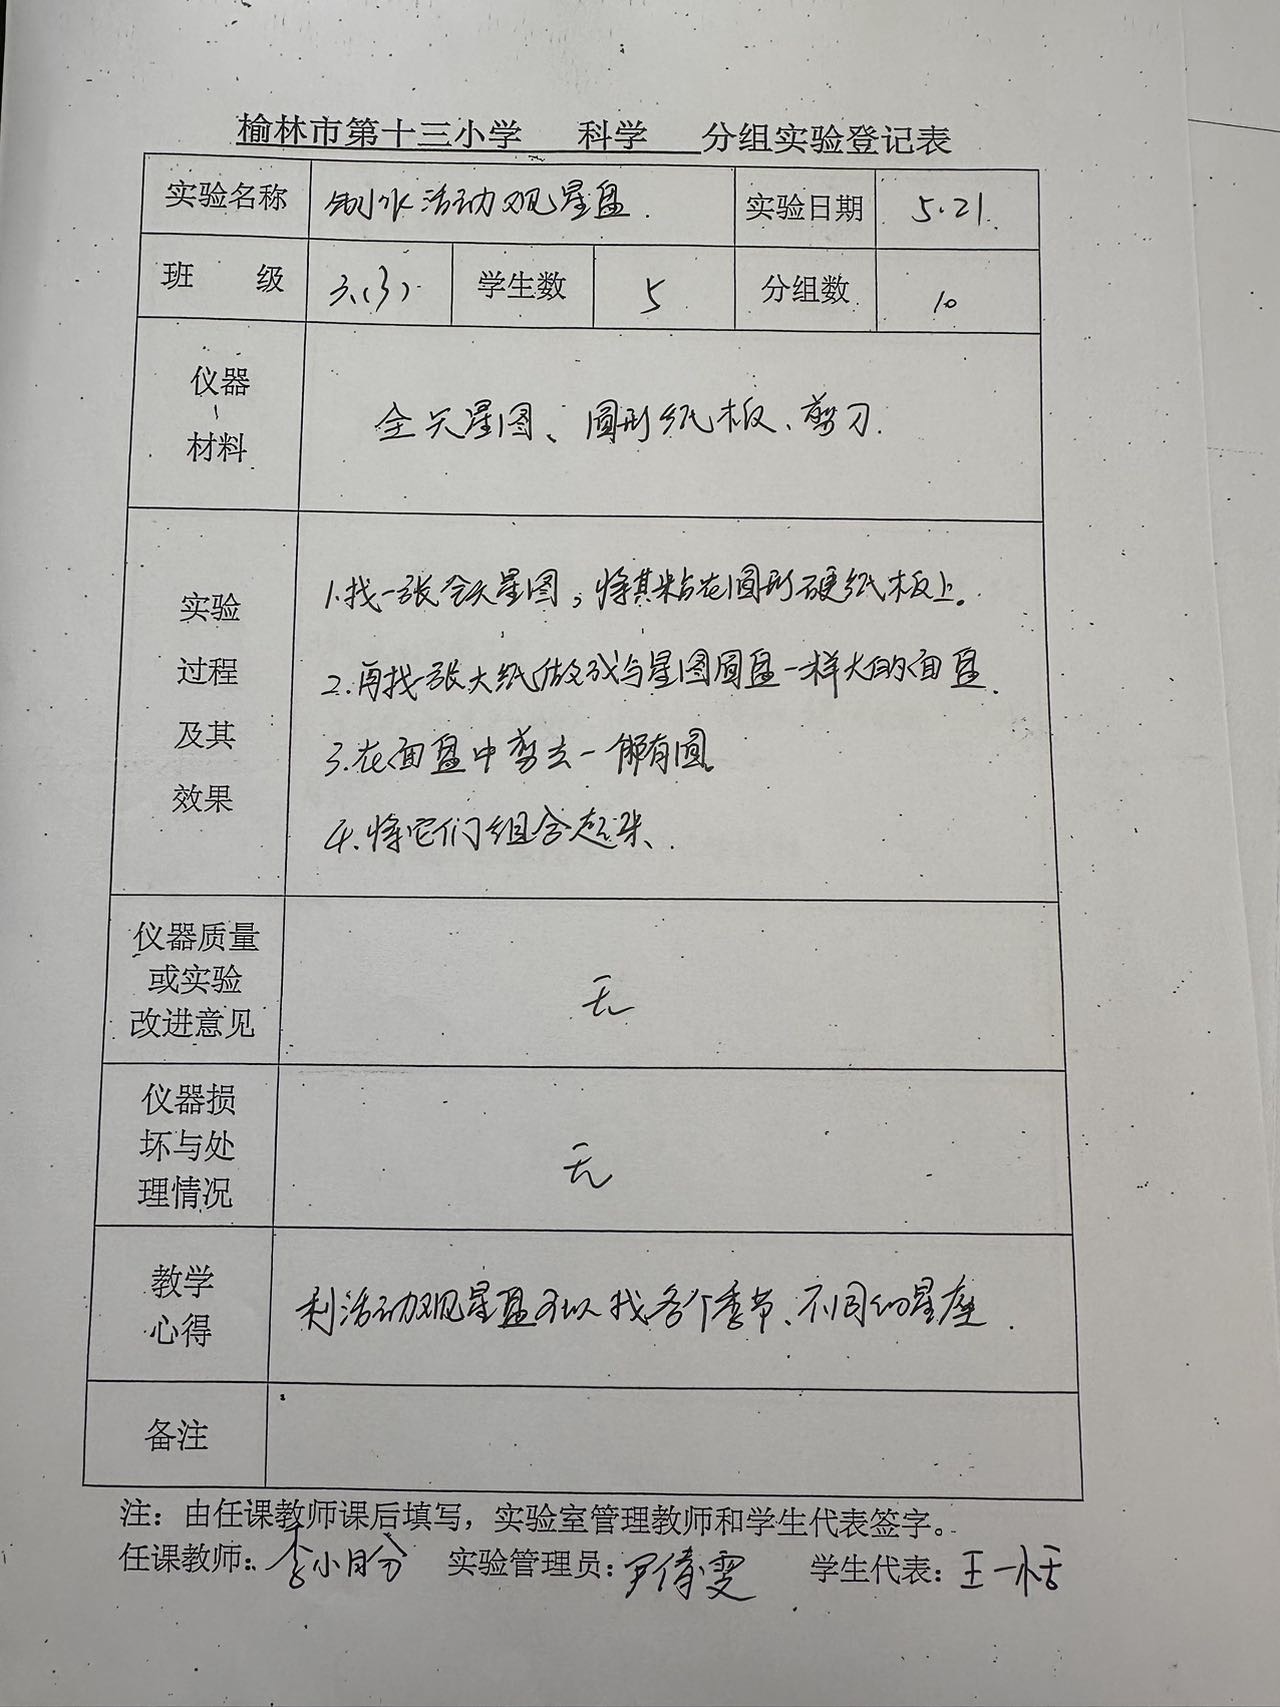 榆林市第十三小学 科学 分组实验登记表
实验名称 制作活动观星盘. 实验日期 5.21.
班 级 三(3) 学生数 5 分组数 10
仪器
、
材料
全天星图、圆形纸板、剪刀.
实验
过程
及其
效果
1.找一张全天星图,将其粘在圆形硬纸板上。
2.再找一张大纸做成与星图圆盘一样大的面盘.
3.在面盘中剪去一个椭圆。
4.将它们组合起来、.
仪器质量
或实验
改进意见
无
仪器损
坏与处
理情况
无
教学
心得
利活动观星盘可以找各个季节、不同的星座.
备注
注:由任课教师课后填写,实验室管理教师和学生代表签字。
任课教师: 李小盼 实验管理员: 尹倩雯 学生代表: 王一恬